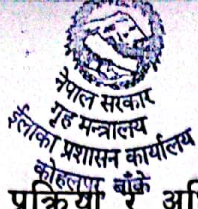 नेपाल सरकार
गृह मन्त्रालय
ईलाका प्रशासन कार्यालय
कोहलपुर बाँके
प्रकिया र